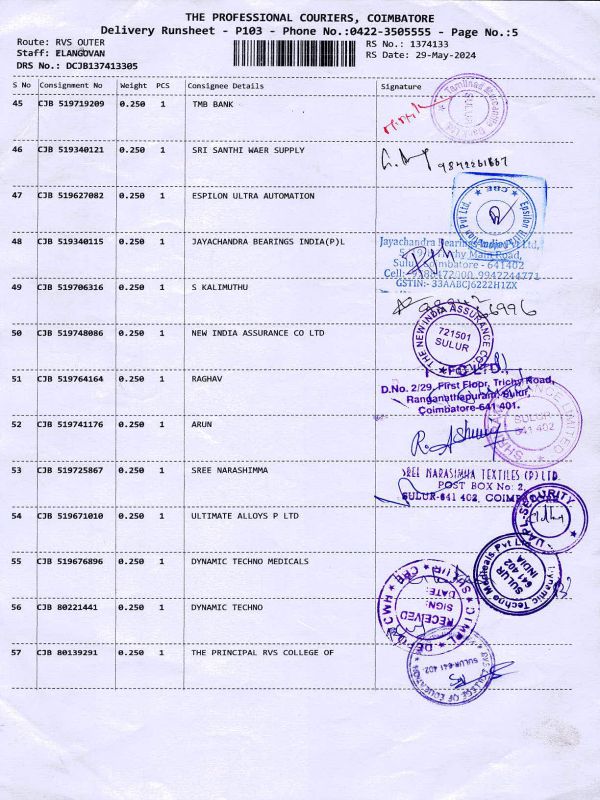 THE PROFESSIONAL COURIERS, COIMBATORE
Delivery Runsheet - P103 - Phone No.:0422-3505555 - Page No.:5
Route: RVS OUTER
RS No.: 1374133
Staff: ELANGOVAN
RS Date: 29-May-2024
DRS No.: DCJB137413305
S No Consignment No Weight PCS Consignee Details Signature
45 CJB 519719209 0.250 1 TMB BANK
SULUR
46 CJB 519340121 0.250 1 SRI SANTHI WAER SUPPLY
47 CJB 519627082 0.250 1 ESPILON ULTRA AUTOMATION
CBE
48 CJB 519340115 0.250 1 JAYACHANDRA BEARINGS INDIA(P)L
Jayachandra Bearings India Pvt Ltd,
Trichy Main Road,
Sulur, Coimbatore - 641402
GSTIN:- 33AABCJ6222H1ZX
49 CJB 519706316 0.250 1 S KALIMUTHU
50 CJB 519748086 0.250 1 NEW INDIA ASSURANCE CO LTD
THE NEW INDIA ASSURANCE CO.
721501
SULUR
51 CJB 519764164 0.250 1 RAGHAV
D.No. 2/29, First Floor, Trichy Road,
Ranganathapuram, Sulur,
Coimbatore-641 401.
52 CJB 519741176 0.250 1 ARUN
SULUR
641 402
53 CJB 519725867 0.250 1 SREE NARASHIMMA
SREE NARASIMMA TEXTILES (P) LTD.
POST BOX No: 2,
SULUR-641 402, COIMBATORE
54 CJB 519671010 0.250 1 ULTIMATE ALLOYS P LTD
UAPL-SECURITY
55 CJB 519676896 0.250 1 DYNAMIC TECHNO MEDICALS
Dynamic Techno Medicals Pvt Ltd
SULUR
641 402
INDIA
56 CJB 80221441 0.250 1 DYNAMIC TECHNO
RECEIVED
SIGN:
DATE:
57 CJB 80139291 0.250 1 THE PRINCIPAL RVS COLLEGE OF
SULUR-641 402
RVS COLLEGE OF EDUCATION